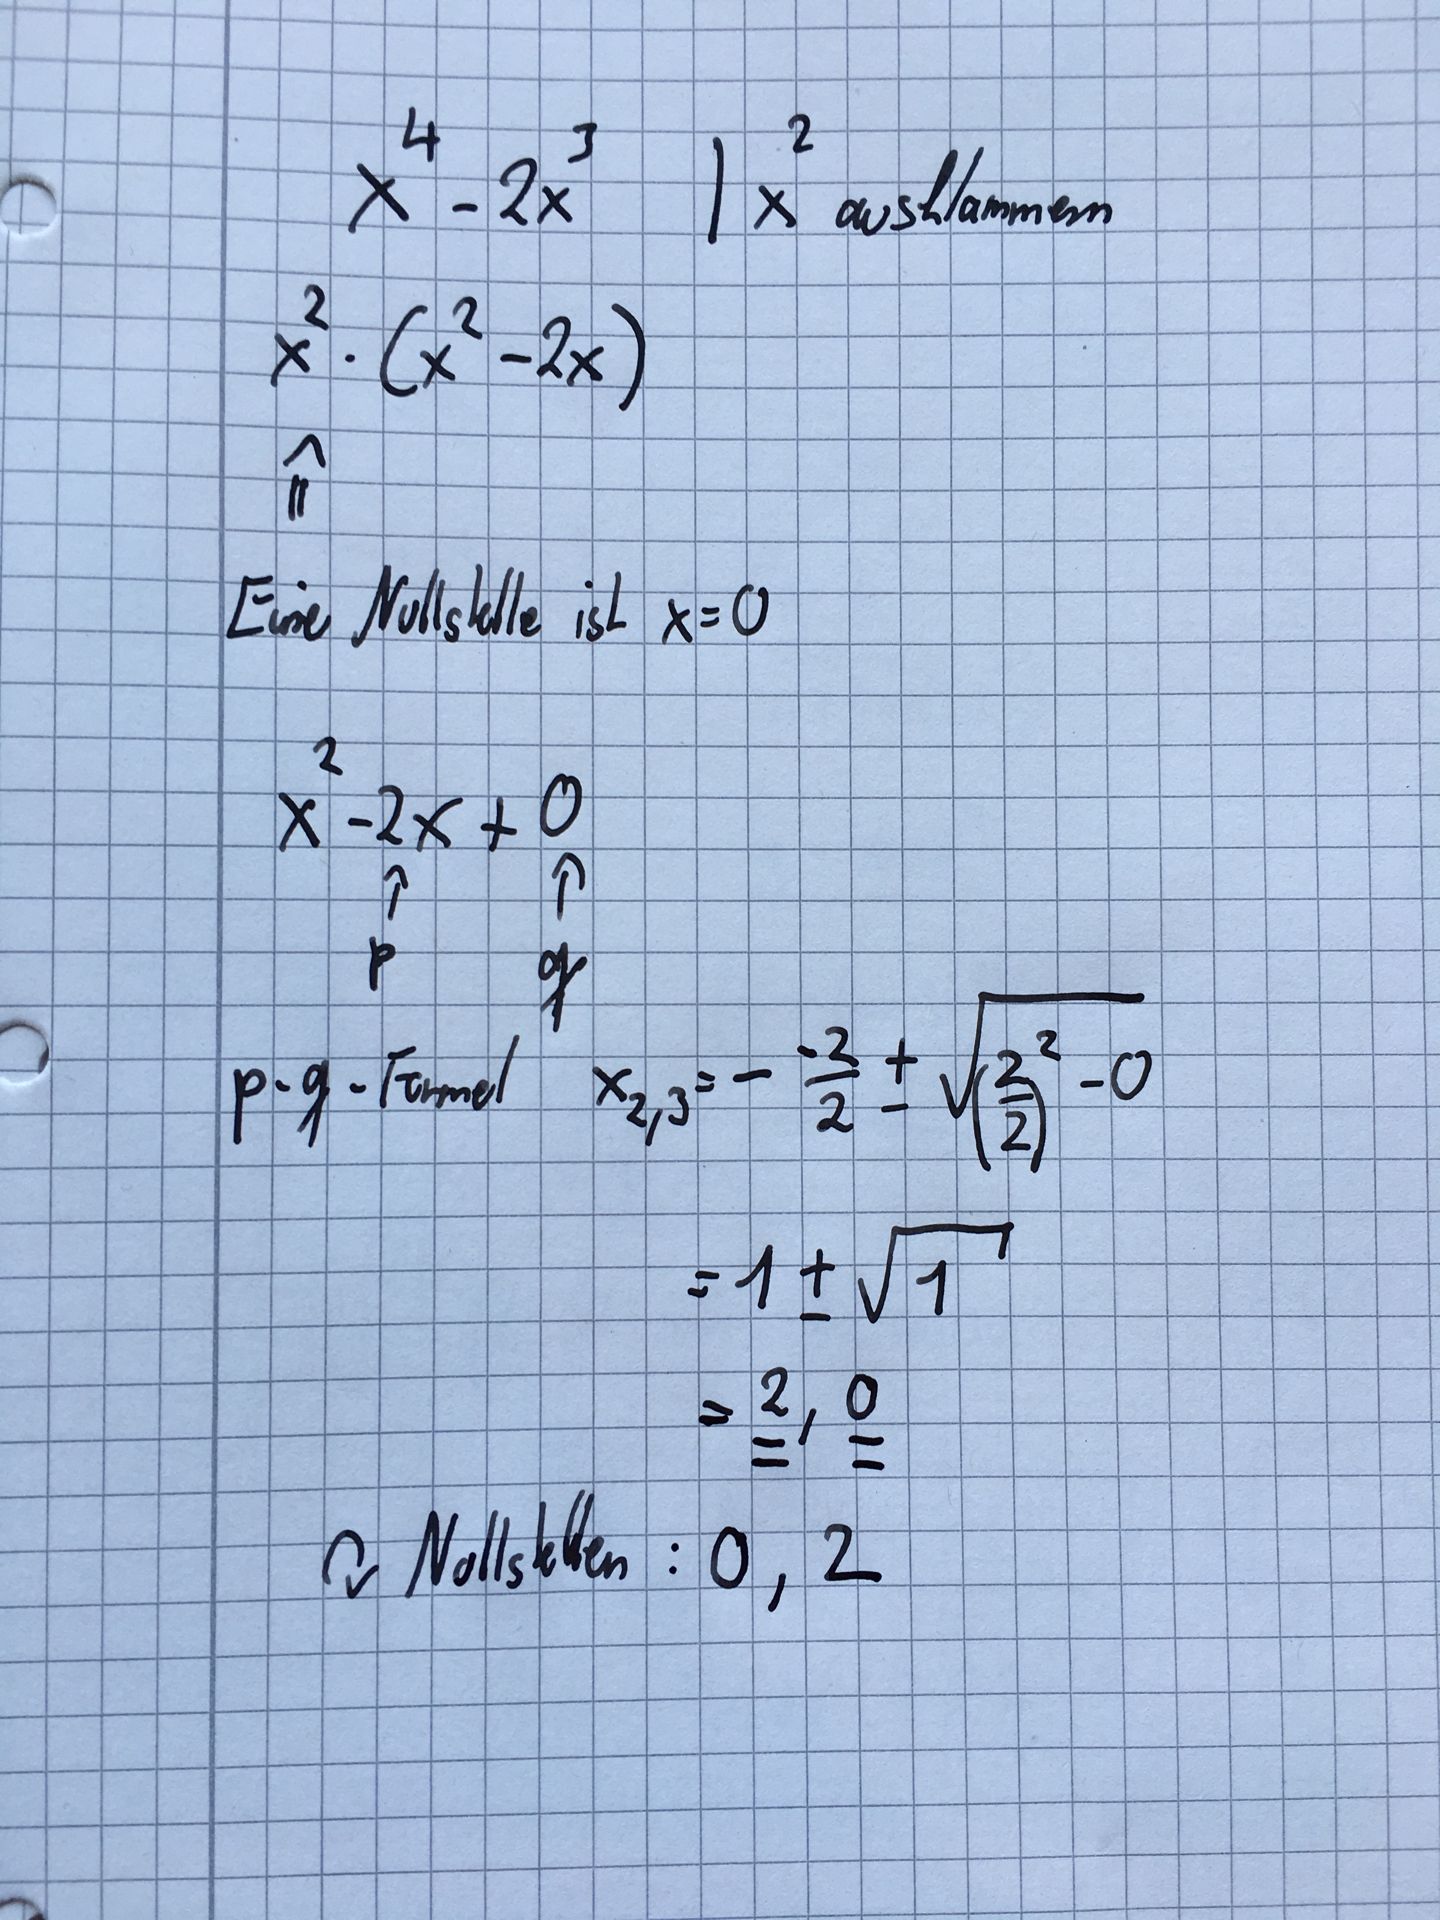 x⁴ - 2x³ | x² ausklammern
x² · (x² - 2x)
⇑
Eine Nullstelle ist x = 0
x² - 2x + 0
↑ ↑
p q
p-q-Formel x₂,₃ = - -2/2 ± √((2/2)² - 0)
= 1 ± √1
= 2, 0
↷ Nullstellen : 0, 2